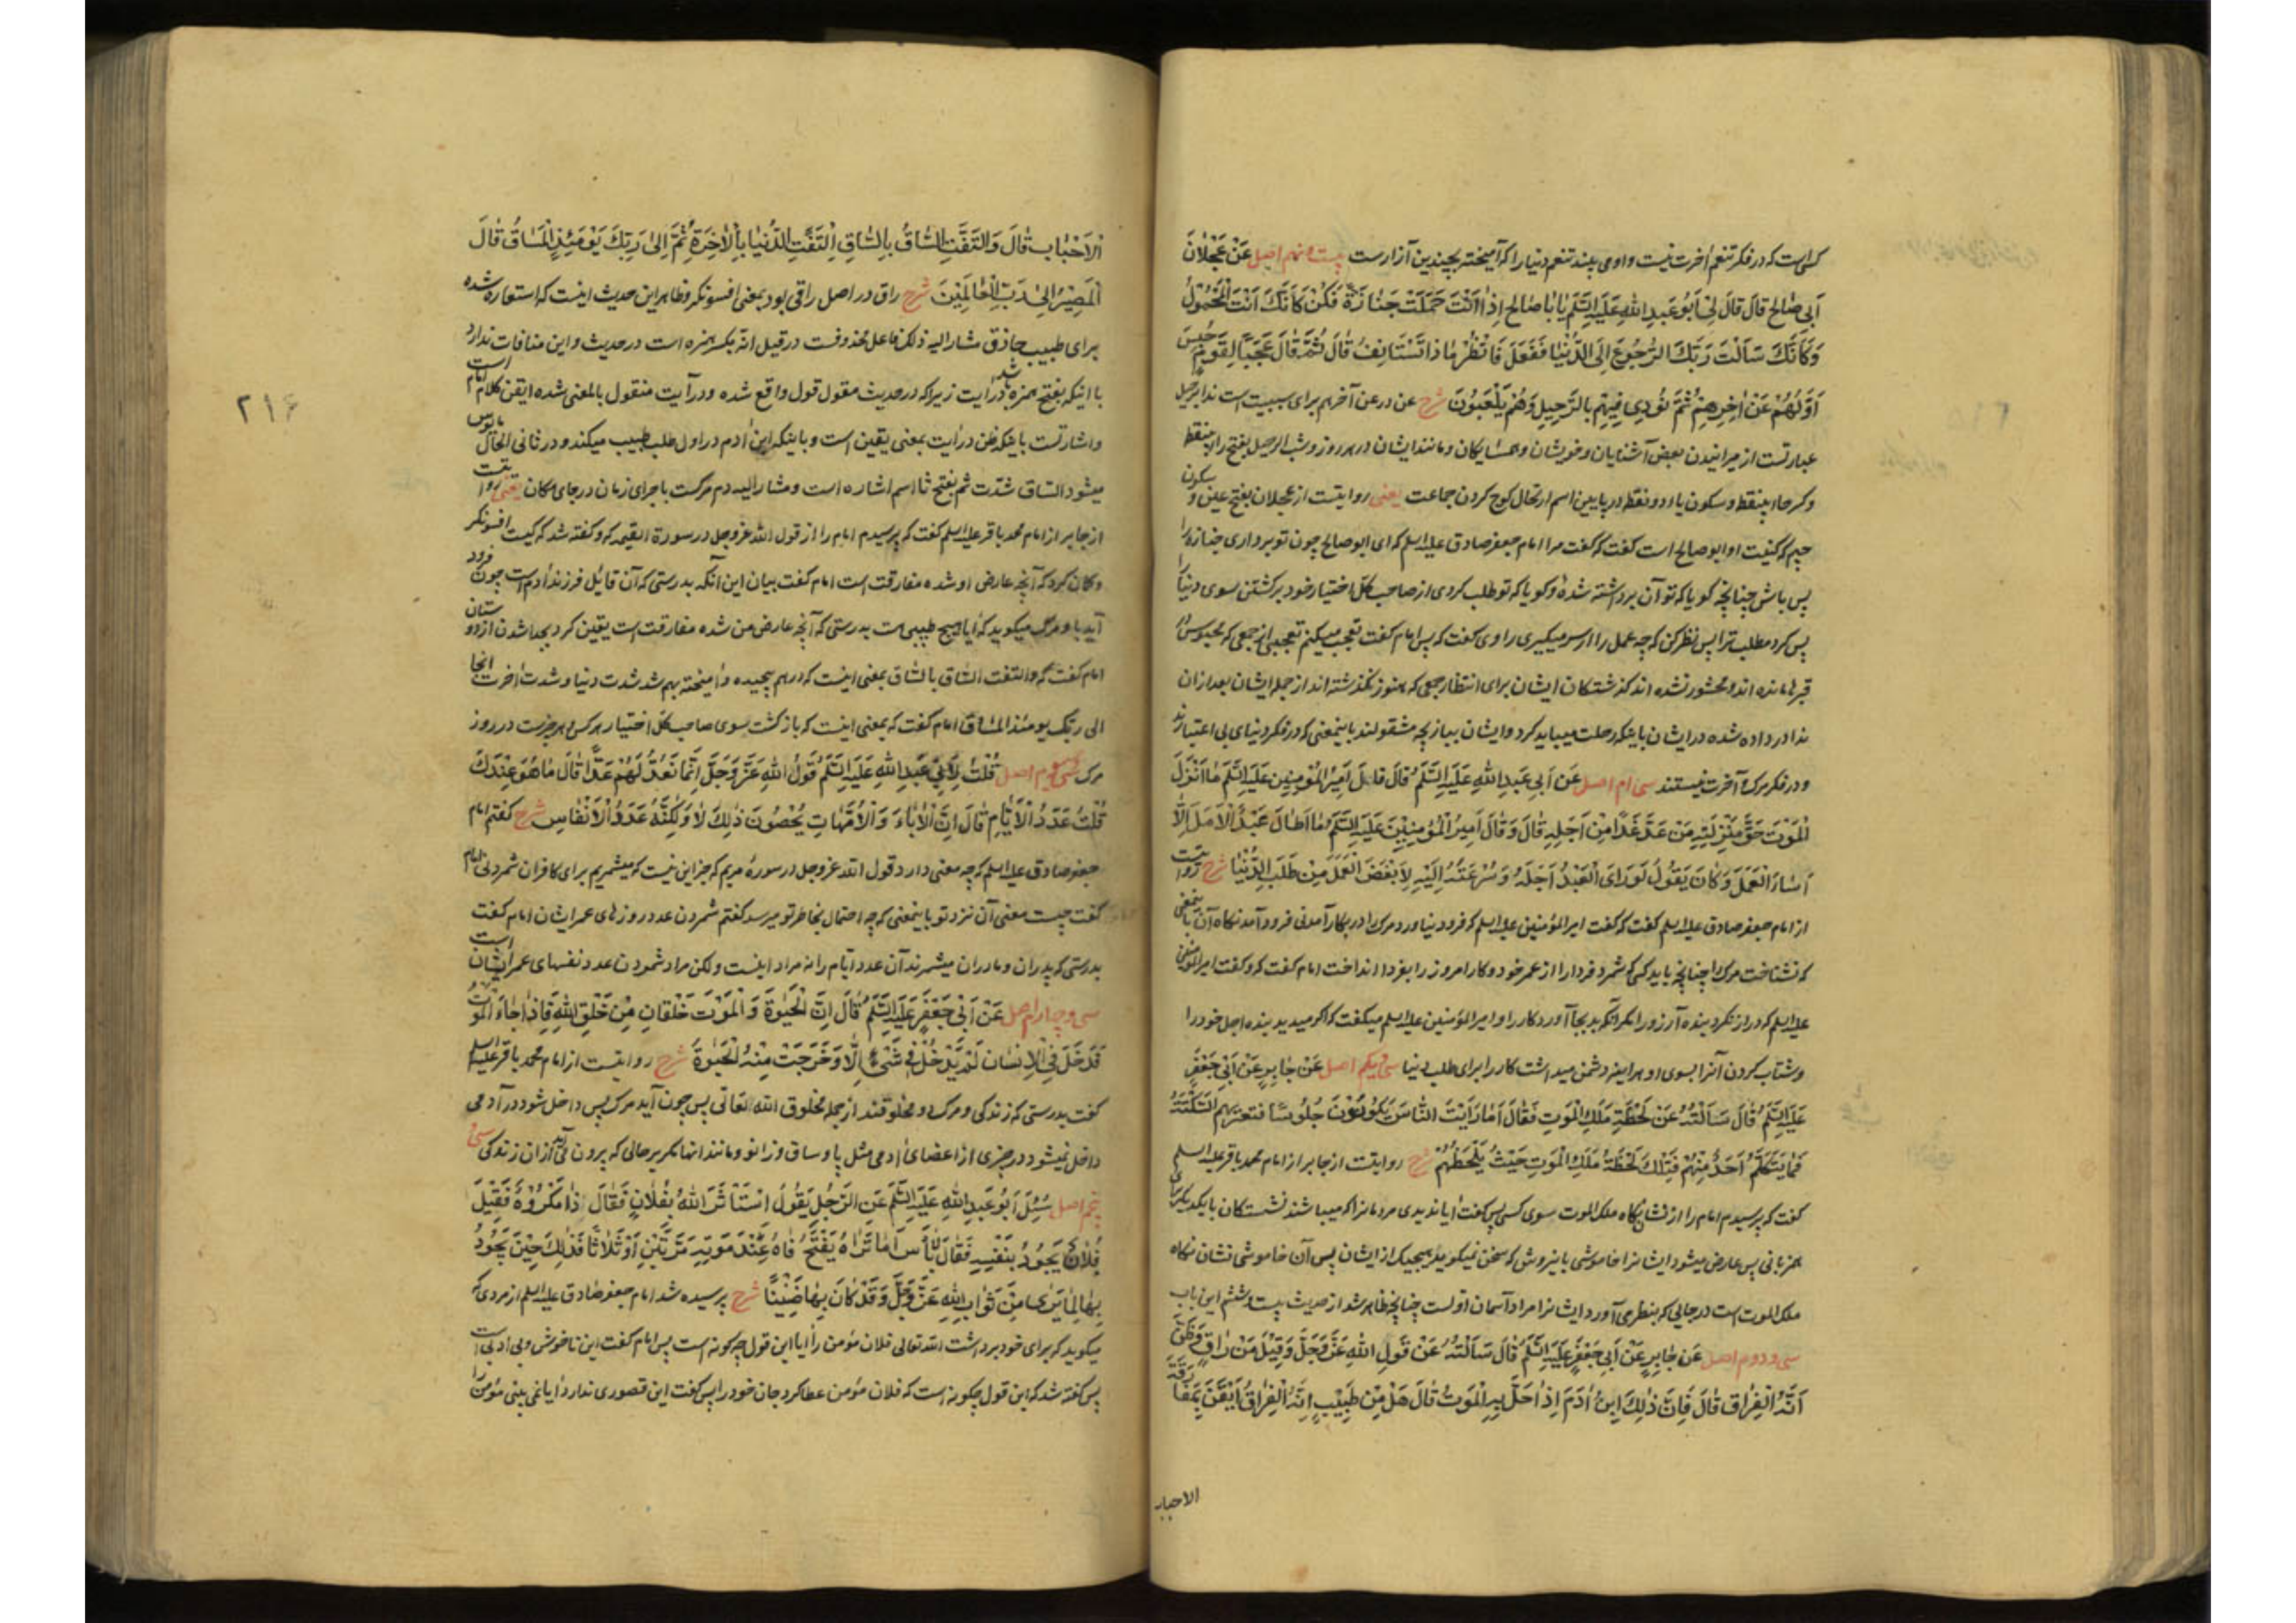 کسی است که در فکر تنعم آخرت نیست و او می پسندد تنعم دنیا را که آمیخته بچندین آزار است بیست و نهم اصل عَنْ عَجْلَانَ
أَبِي صَالِحٍ قَالَ قَالَ لِي أَبُو عَبْدِ اللهِ عَلَيْهِ السَّلَمُ يَا بَا صَالِحٍ إِذَا أَنْتَ حَمَلْتَ جَنَازَةً فَكُنْ كَأَنَّكَ أَنْتَ الْمَحْمُولُ
وَكَأَنَّكَ سَأَلْتَ رَبَّكَ الرُّجُوعَ إِلَى الدُّنْيَا فَفَعَلَ فَانْظُرْ مَا ذَا تَسْتَأْنِفُ قَالَ ثُمَّ قَالَ عَجَبًا لِقَوْمٍ حُبِسَ
أَوَّلُهُمْ عَنْ آخِرِهِمْ ثُمَّ نُودِيَ فِيهِمْ بِالرَّحِيلِ وَهُمْ يَلْعَبُونَ شرح عن در عن آخرهم برای سببیت است ندا برحیل
عبارتست از میرانیدن بعض آشنایان و خویشان و همسایکان و مانند ایشان در هر روز و شب الرحیل بفتح را بینقطه
و کسر حا بینقطه و سکون یا دو نقطه در پایین اسم ارتحال کوچ کردن جماعت یعنی روایتست از عجلان بفتح عین و سکون
جیم که کنیت او ابو صالح است گفت که گفت مرا امام جعفر صادق علیه السلم که ای ابو صالح چون تو برداری جنازه را
پس باش چنانچه کویا که تو آن برداشته شدهٔ و کویا که تو طلب کردی از صاحب کل اختیار خود برکشتن سوی دنیا را
پس کرد مطلب ترا پس نظر کن که چه عمل را از سر میکیری راوی گفت که پس امام گفت تعجب میکنم تعجبی از جمعی که محبوس
قبرها مانده اند و محشور نشده اند کذشتکان ایشان برای انتظار جمعی که هنوز نکذشته اند از جملهٔ ایشان بعد از آن
ندا در داده شده در ایشان باینکه رحلت میباید کرد و ایشان ببازیچه مشغولند باینمعنی که در فکر دنیای بی اعتبارند
و در فکر مرک و آخرت نیستند سی ام اصل عَنْ أَبِي عَبْدِ اللهِ عَلَيْهِ السَّلَمُ قَالَ قَالَ أَمِيرُ الْمُؤْمِنِينَ عَلَيْهِ السَّلَمُ مَا أَنْزَلَ
الْمَوْتَ حَقَّ مَنْزِلَتِهِ مَنْ عَدَّ غَدًا مِنْ أَجَلِهِ قَالَ وَقَالَ أَمِيرُ الْمُؤْمِنِينَ عَلَيْهِ السَّلَمُ مَا أَطَالَ عَبْدٌ الْأَمَلَ إِلَّا
أَسَاءَ الْعَمَلَ وَكَانَ يَقُولُ لَوْ رَأَى الْعَبْدُ أَجَلَهُ وَسُرْعَتَهُ إِلَيْهِ لَأَبْغَضَ الْعَمَلَ مِنْ طَلَبِ الدُّنْيَا شرح روایتست
از امام جعفر صادق علیه السلم گفت که گفت امیر المؤمنین علیه السلم که فرود نیاورد مرک را در بکار آمدنی فرود آمدنکاه آن باینمعنی
که نشناخت مرک را چنانچه باید کسی که شمرد فردا را از عمر خود و کار امروز را بفردا انداخت امام گفت که و گفت امیر المؤمنین
علیه السلم که دراز نکرد بنده آرزو را مکر آنکه بد بجا آورد کار را و امیر المؤمنین علیه السلم میکفت که اکر میدید بنده اجل خود را
و شتاب کردن آنرا بسوی او هر اینه دشمن میداشت کار را برای طلب دنیا سی و یکم اصل عَنْ جَابِرٍ عَنْ أَبِي جَعْفَرٍ
عَلَيْهِ السَّلَمُ قَالَ سَأَلْتُهُ عَنْ لَحْظَةِ مَلَكِ الْمَوْتِ فَقَالَ أَمَا رَأَيْتَ النَّاسَ يَكُونُونَ جُلُوسًا فَتَعْتَرِيهِمُ السَّكْتَةُ
فَمَا يَتَكَلَّمُ أَحَدٌ مِنْهُمْ فَتِلْكَ لَحْظَةُ مَلَكِ الْمَوْتِ حَيْثُ يَلْحَظُهُمْ شرح روایتست از جابر از امام محمد باقر علیه السلم
گفت که پرسیدم امام را از نشان نکاه ملک الموت سوی کسی پس گفت آیا ندیدی مردمانرا که میباشند نشستکان با یکدیکر برای
همزبانی پس عارض میشود ایشانرا خاموشی باینروش که سخن نمیکوید هیچیک از ایشان پس آن خاموشی نشان نکاه
ملک الموت است در جایی که بنظر می آورد ایشانرا مراد آسمان اولست چنانچه ظاهر شد از حدیث بیست و ششم این باب
سی و دوم اصل عَنْ جَابِرٍ عَنْ أَبِي جَعْفَرٍ عَلَيْهِ السَّلَمُ قَالَ سَأَلْتُهُ عَنْ قَوْلِ اللهِ عَزَّ وَجَلَّ وَقِيلَ مَنْ رَاقٍ وَظَنَّ
أَنَّهُ الْفِرَاقُ قَالَ فَإِنَّ ذَلِكَ ابْنُ آدَمَ إِذَا حَلَّ بِهِ الْمَوْتُ قَالَ هَلْ مِنْ طَبِيبٍ إِنَّهُ الْفِرَاقُ أَيْقَنَ بِمُفَارَقَةِ
الاحباب
الْأَحْبَابِ قَالَ وَالْتَفَّتِ السَّاقُ بِالسَّاقِ الْتَفَّتِ الدُّنْيَا بِالْآخِرَةِ ثُمَّ إِلَى رَبِّكَ يَوْمَئِذٍ الْمَسَاقُ قَالَ
الْمَصِيرُ إِلَى رَبِّ الْعَالَمِينَ شرح راق در اصل راقی بود بمعنی افسونکر و ظاهر این حدیث اینست که استعاره شده
برای طبیب حاذق مشار الیه ذلک فاعل محذوفست در قیل انه بکسر همزه است در حدیث و این منافات ندارد
با اینکه بفتح همزه باشد در آیت زیرا که در حدیث مقول قول واقع شده و در آیت منقول بالمعنی شده ایقن کلام امام است
و اشارتست باینکه ظن در آیت بمعنی یقین است و باینکه ابن آدم در اول طلب طبیب میکند و در ثانی الحال مایوس
میشود الساق شدّت ثم بفتح ثا اسم اشاره است و مشار الیه دم مرکست باجرای زمان در جای مکان یعنی روایتست
از جابر از امام محمد باقر علیه السلم گفت که پرسیدم امام را از قول الله عز و جل در سورة القیمه که و کفته شد که کیست افسونکر
و کمان کرد که آنچه عارض او شده مفارقت است امام گفت بیان این آنکه بدرستی که آن قائل فرزند آدم است چون فرود
آید باو مرک میکوید که آیا هیچ طبیبی هست بدرستی که آنچه عارض من شده مفارقت است یقین کرد بجدا شدن از دوستان
امام گفت که والتفت الساق بالساق بمعنی اینست که در هم پیچیده و آمیخته بهم شد شدت دنیا و شدت آخرت انجا
الی ربک یومئذ المساق امام گفت که بمعنی اینست که بازکشت سوی صاحب کل اختیار هر کس و هر چیزست در روز
مرک سی و سوم اصل قُلْتُ لِأَبِي عَبْدِ اللهِ عَلَيْهِ السَّلَمُ قَوْلُ اللهِ عَزَّ وَجَلَّ إِنَّمَا نَعُدُّ لَهُمْ عَدًّا قَالَ مَا هُوَ عِنْدَكَ
قُلْتُ عَدَدُ الْأَيَّامِ قَالَ إِنَّ الْآبَاءَ وَالْأُمَّهَاتِ يُحْصُونَ ذَلِكَ لَا وَلَكِنَّهُ عَدَدُ الْأَنْفَاسِ شرح گفتم امام
جعفر صادق علیه السلم که چه معنی دارد قول الله عز و جل در سورهٔ مریم که جز این نیست که میشمریم برای کافران شمردنی امام
گفت چیست معنی آن نزد تو باینمعنی که چه احتمال بخاطر تو میرسد گفتم شمردن عدد روزهای عمر ایشان امام گفت
بدرستی که پدران و مادران میشمرند آن عدد ایام را نه مراد اینست ولکن مراد شمردن عدد نفسهای عمر ایشان است
سی و چهارم اصل عَنْ أَبِي جَعْفَرٍ عَلَيْهِ السَّلَمُ قَالَ إِنَّ الْحَيٰوةَ وَالْمَوْتَ خَلْقَانِ مِنْ خَلْقِ اللهِ فَإِذَا جَاءَ الْمَوْتُ
فَدَخَلَ فِي الْإِنْسَانِ لَمْ يَدْخُلْ فِي شَيْءٍ إِلَّا وَخَرَجَتْ مِنْهُ الْحَيٰوةُ شرح روایتست از امام محمد باقر علیه السلم
گفت بدرستی که زندکی و مرک دو مخلوقند از جمله مخلوق الله تعالی پس چون آید مرک پس داخل شود در آدمی
داخل نمیشود در چیزی از اعضای آدمی مثل پا و ساق و زانو و مانند انها مکر بر حالی که بیرون می آید از ان زندکی سی و
پنجم اصل سُئِلَ أَبُو عَبْدِ اللهِ عَلَيْهِ السَّلَمُ عَنِ الرَّجُلِ يَقُولُ اسْتَأْثَرَ اللهُ بِفُلَانٍ فَقَالَ ذَا مَكْرُوهٌ فَقِيلَ
فُلَانٌ يَجُودُ بِنَفْسِهِ فَقَالَ لَا بَأْسَ أَمَا تَرَاهُ يَفْتَحُ فَاهُ عِنْدَ مَوْتِهِ مَرَّتَيْنِ أَوْ ثَلَاثًا فَذَلِكَ حِينَ يَجُودُ
بِهَا لِمَا يَرَى مِنْ ثَوَابِ اللهِ عَزَّ وَجَلَّ وَقَدْ كَانَ بِهَا ضَنِينًا شرح پرسیده شد امام جعفر صادق علیه السلم از مردی که
میکوید که برای خود برداشت الله تعالی فلان مؤمن را آیا این قول چکونه است پس امام گفت این ناخوش و بی ادبی است
پس کفته شد که این قول چکونه است که فلان مؤمن عطا کرد جان خود را پس گفت این قصوری ندارد آیا نمی بینی مؤمن را
۲۱۶